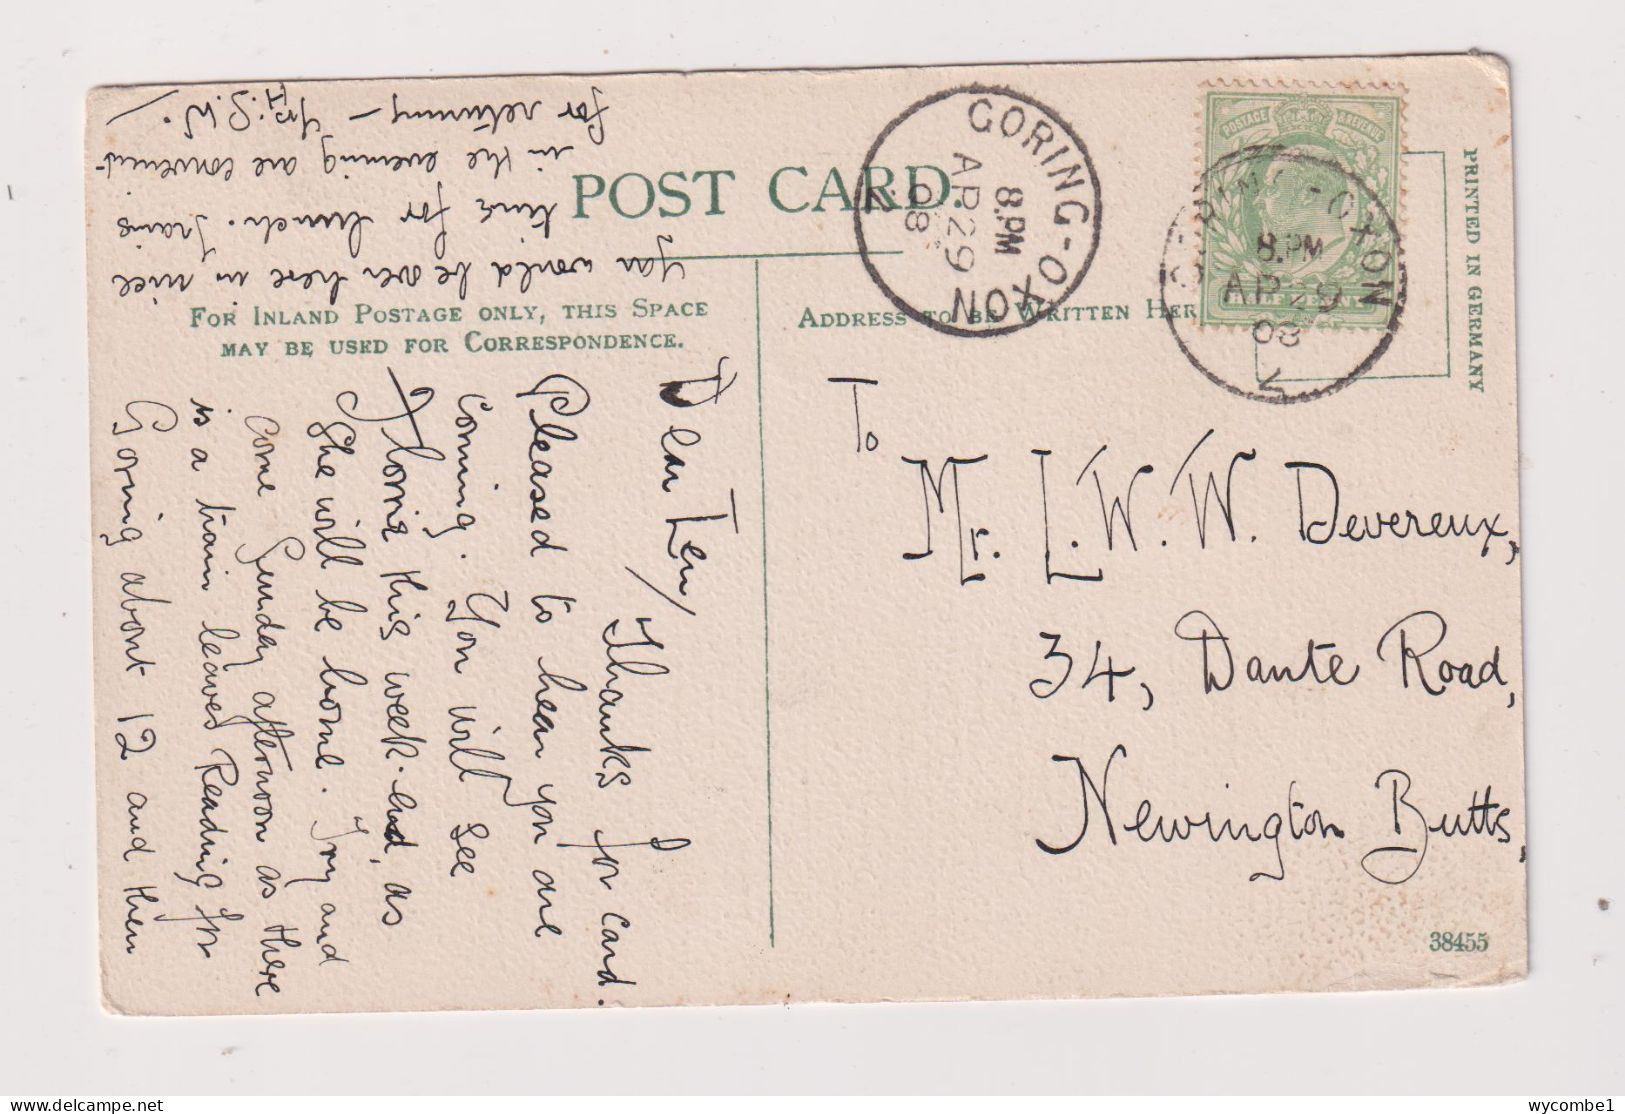 POST CARD.
FOR INLAND POSTAGE ONLY, THIS SPACE
MAY BE USED FOR CORRESPONDENCE.
ADDRESS TO BE WRITTEN HER
PRINTED IN GERMANY
POSTAGE & REVENUE
HALFPENNY
GORING-OXON
8.PM
AP 29
08
GORING-OXON
8.PM
AP 29
08
Dear Len/
Thanks for card.
Pleased to hear you are
coming. You will see
Florrie this week-end, as
She will be home. Try and
come Sunday afternoon as there
is a train leaves Reading for
Goring about 12 and then
You would be over here in nice
time for lunch. Trains
in the evening are convenient
for returning — Yrs.
H.S.W.
To
Mr. L. W. W. Devereux,
34, Dante Road,
Newington Butts,
38455
wycombe1